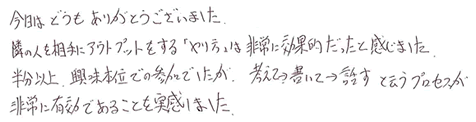 今日は どうも ありがとうございました.
隣の人を相手にアウトプットをする「ヤリテ」は非常に効果的だったと感じました.
半分以上、興味本位での参加でしたが、考えて→書いて→話す と云うプロセスが
非常に有効であることを実感しました.